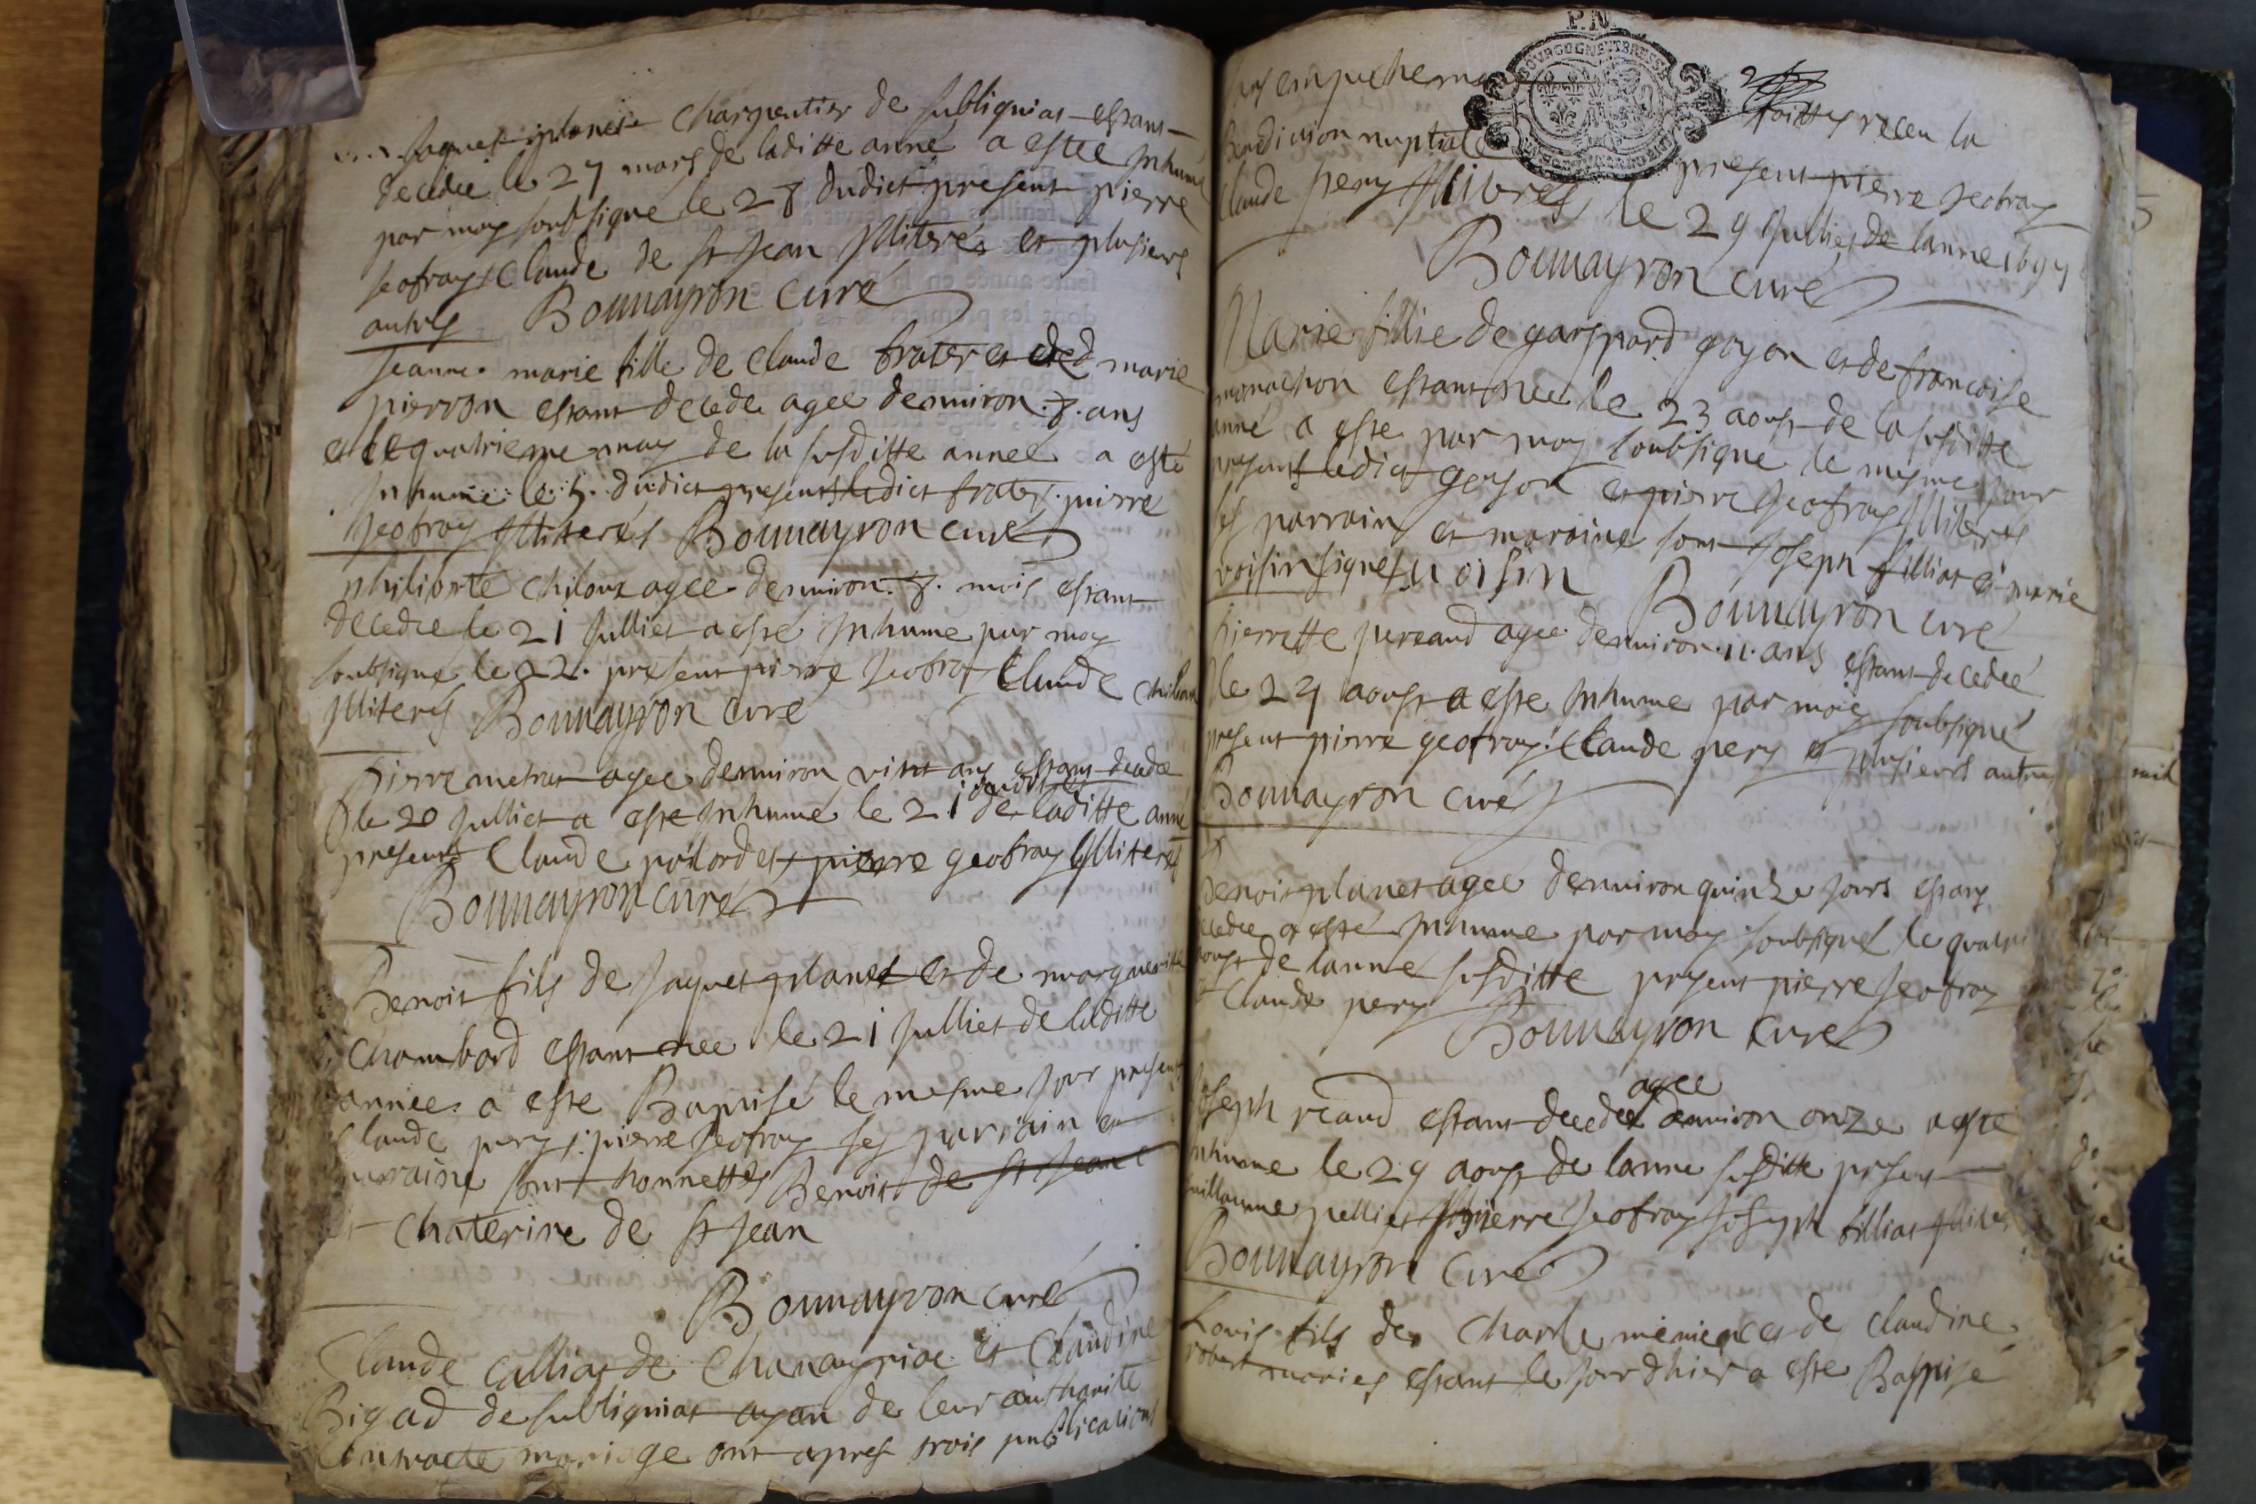 Jaques planet charpentier de subliguiat estant
decedee le 27 mars de laditte anné a estee Inhumé
par moy soubsigné le 28 dudict present pierre
Jeofray Claude de st Jean Illiterés et plusieurs
autres Bonnayron curé
Jeanne marie fille de Claude frater et de marie
pierron estant decede agee denuiron .8. ans
le quatrieme may de la susditte anneé a esté
Inhumé le 5. dudict present ledict frater pierre
Jeofray Illiterés Bonnayron curé
philiberte chiloux agee denuiron .8. mois estant
decedee le 21 Julliet a esté Inhume par moy
soubsigne le 22. present pierre Jeofray Claude
Illiterés Bonnayron curé
Pierre metrat agee denuiron vint ans estant decedee
le 20 Julliet a este Inhumé le 21 de laditte anné
presents Claude pierre geofray Illiterés
Bonnayron curé
Benoist fils de Jaques planet et de marguerite
Chambard estant nee le 21 Julliet de laditte
année a este Baptisé le mesme Jour present
Claude pery pierre Jeofray ses parrain et
maraine sont honnettes Benoist de st Jean
et Chaterine de st Jean
Bonnayron curé
Claude calliat de Chauayriac et Claudine
Bigad de subliguiat ayan de leur authorité
Contracte mariage ont apres trois publications
sans empechema
Benedicion nuptiale receu la
Claude pery Illiterés present pierre Jeofray
le 29 Julliet de lanne 1697
Bonnayron curé
PN
BOURGOGNE ET BRESSE
Marie fillie de gaspard goyon et de francoise
monachon estant nee le 23 aoust de la susditte
anné a este par moy soubsigné le mesme Jour
present ledict goyon et pierre Jeofray Illiterés
ses parrain et maraine sont Joseph filliat et marie
voisin signes n oisin
Bonnayron curé
pierrette agee denuiron .11. ans estant decedeé
le 24 aoust a este Inhume par moy soubsigné
present pierre geofray Claude pery et plusieurs autres
Bonnayron curé
Benoist planet agee denuiron quinze Jours estant
decedee a esté Inhumé par moy soubsigné le
aoust de lanné susditte present pierre Jeofray
et Claude pery
Bonnayron curé
agee
Joseph reaud estant decedee denuiron onze a esté
Inhume le 29 aoust de lanne susditte present
guillaume pellier pierre Jeofray Joseph filliat
Bonnayron curé
Louis fils de Charle et de Claudine
robert maries estant le Jour dhier a este Baptisé